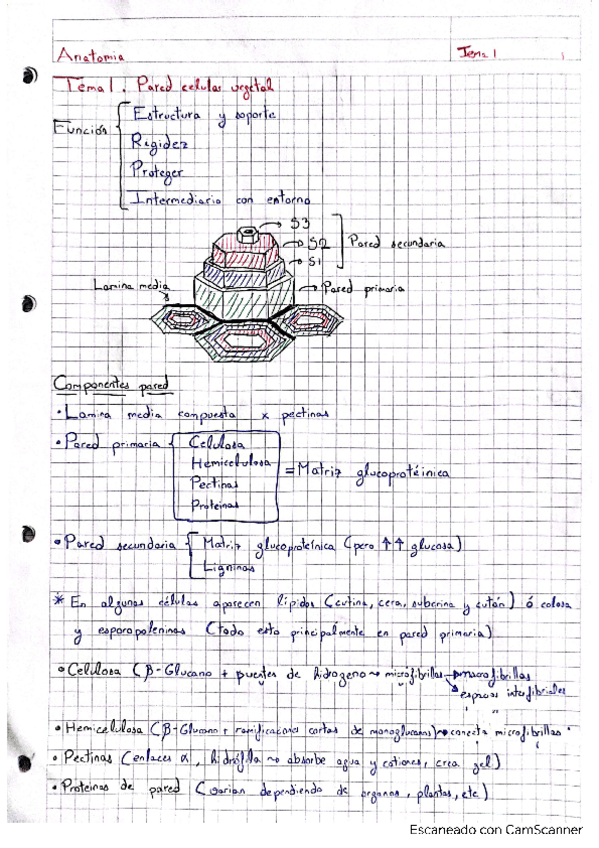 Anatomia Tema 1
Tema 1. Pared celular vegetal
Función
Estructura y soporte
Rigidez
Proteger
Intermediario con entorno
S3
S2
S1
Pared secundaria
Lamina media
Pared primaria
Componentes pared
• Lamina media compuesta x pectinas
• Pared primaria
Celulosa
Hemicelulosa
Pectinas
Proteinas
= Matriz glucoprotéinica
• Pared secundaria
Matriz glucoproteínica (pero ↑↑ glucosa)
Ligninas
* En algunas células aparecen lípidos (cutina, cera, suberina y cután) ó calosa
y esporopoleninas (todo esto principalmente en pared primaria)
• Celulosa (β-Glucano + puentes de hidrogeno → microfibrillas → macrofibrillas
→ espacios interfibriales
• Hemicelulosa (β-Glucano + ramificaciones cortas de monoglucanos) → conecta microfibrillas
• Pectinas (enlaces α, hidrófila → absorbe agua y cationes, crea gel)
• Proteinas de pared (varian dependiendo de organos, plantas, etc)
Escaneado con CamScanner